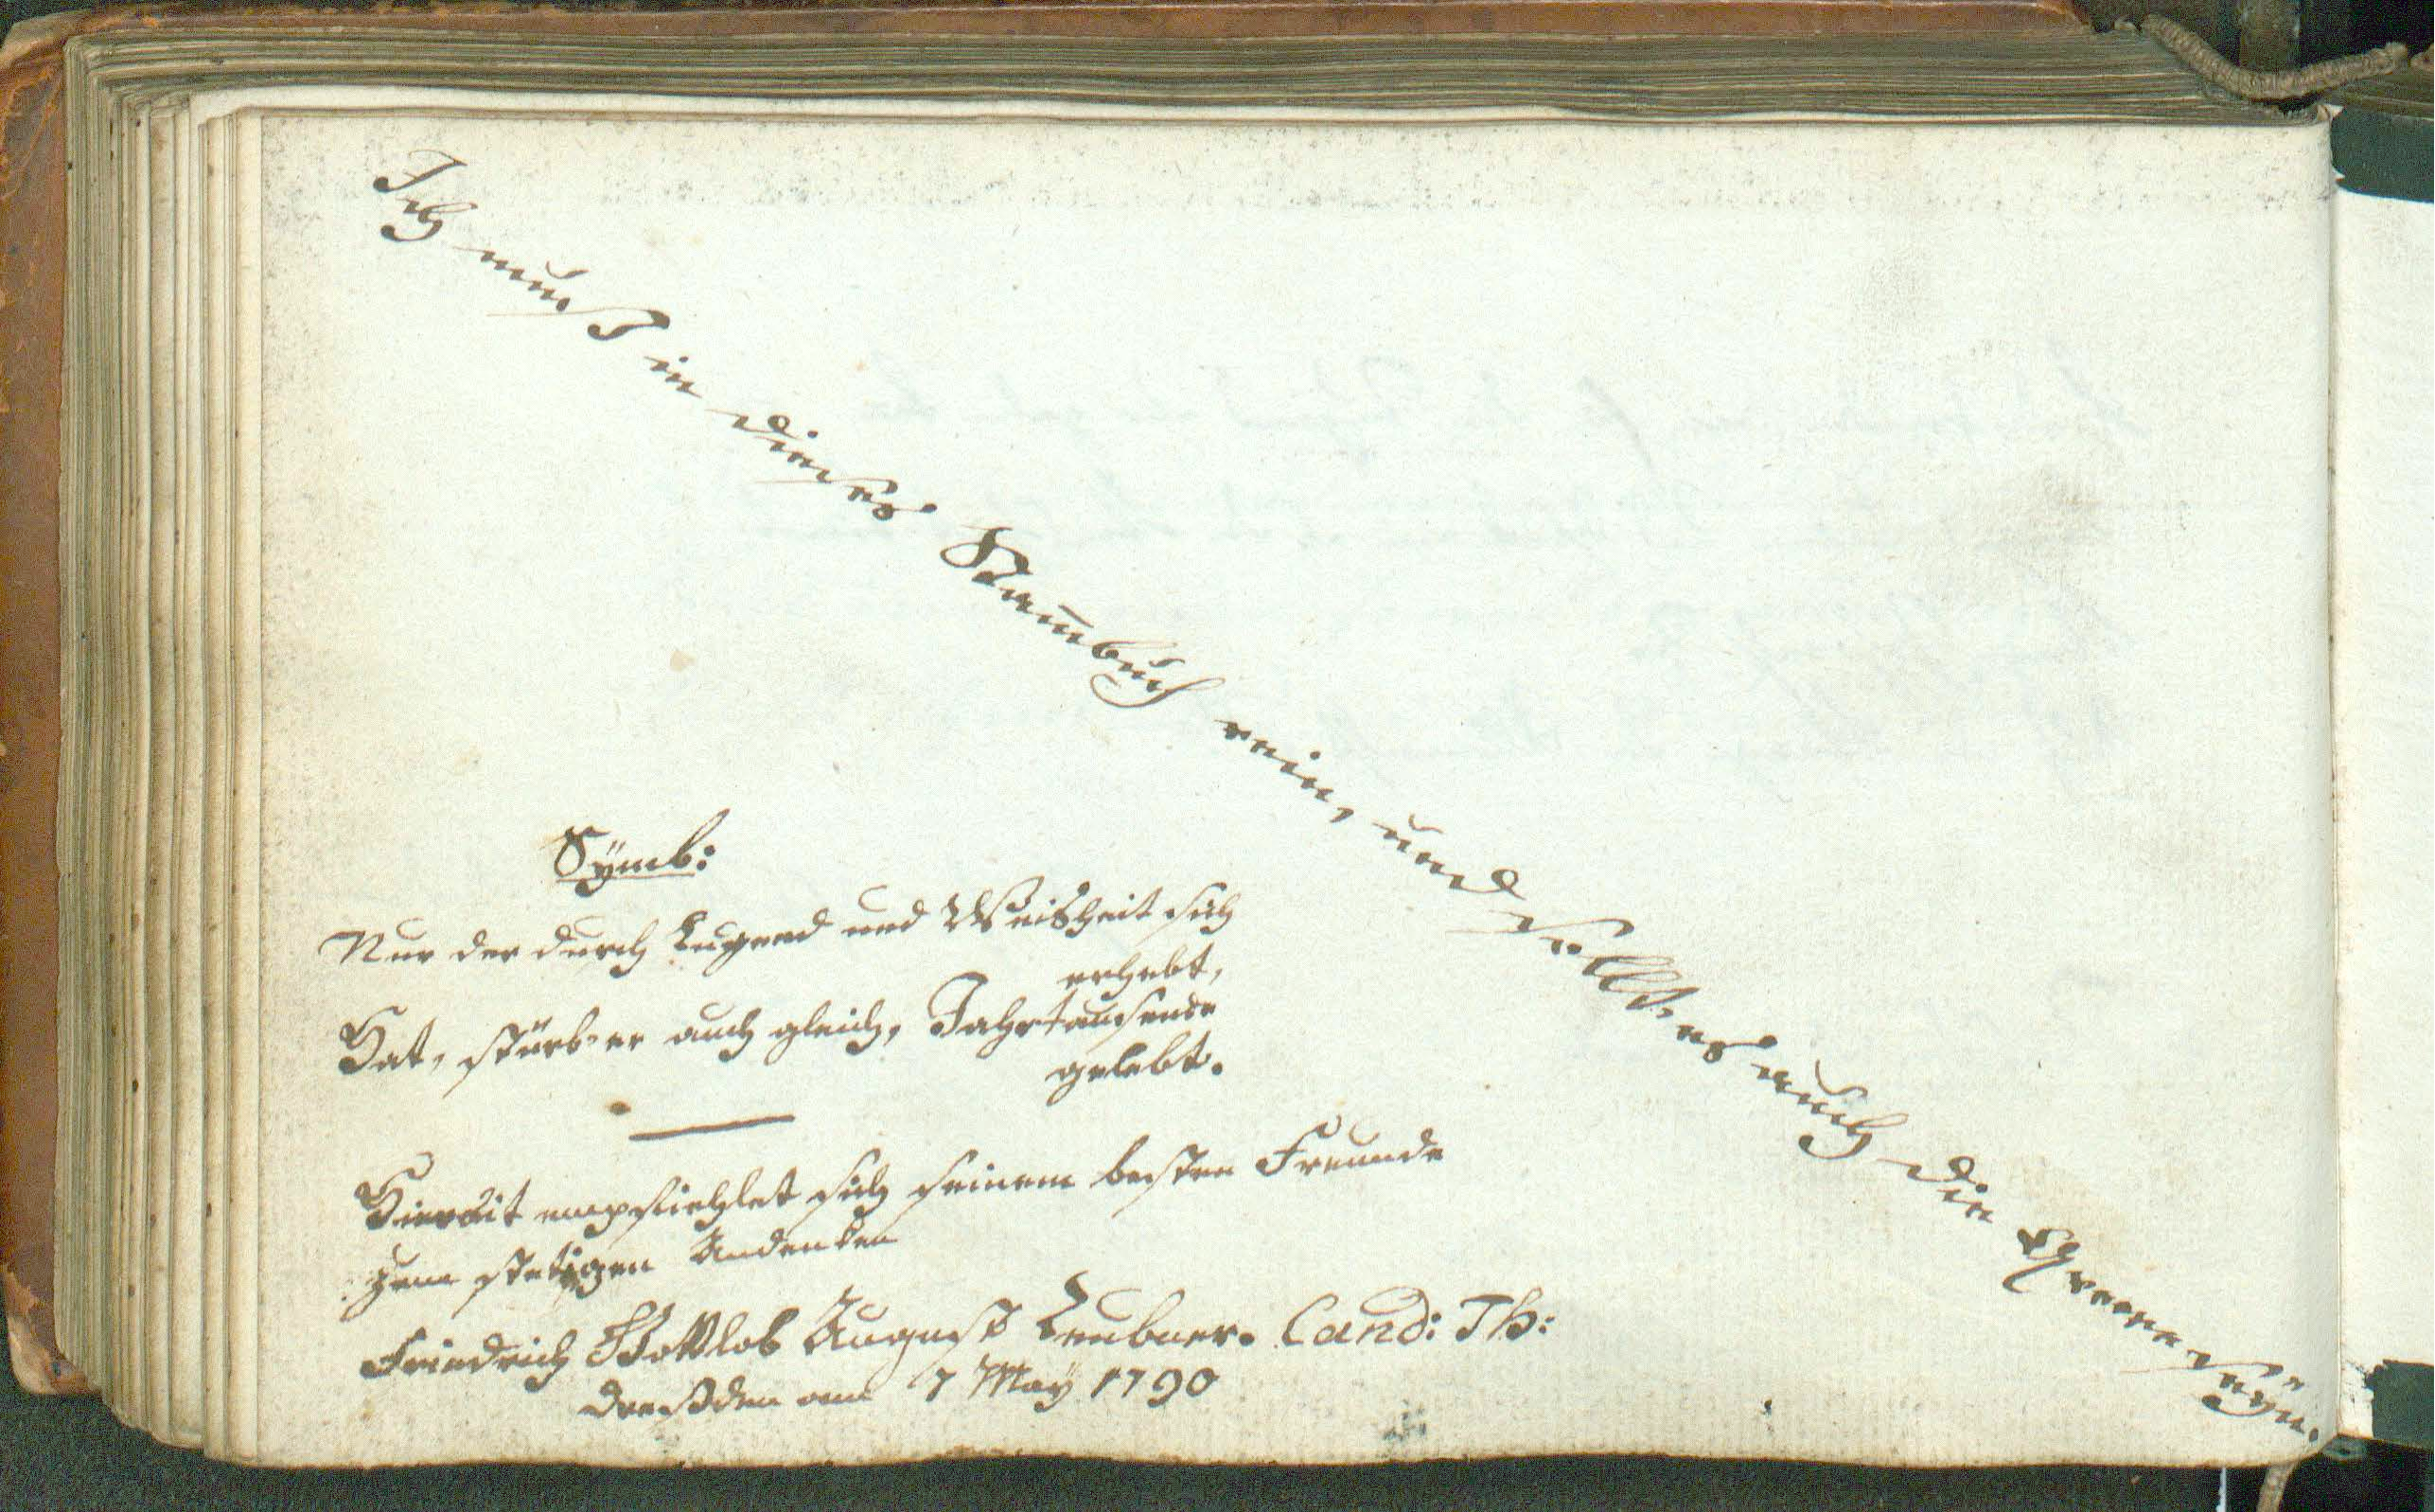 Ich muß in dieses Stam̅buch rein, und sollt es auch die Queere seÿn.
Sÿmb:
Nur der durch Tugend und Weisheit sich
erhebt,
Hat, stürb' er auch gleich, Jahrtausende
gelebt.
Hiermit empfiehlet sich seinem besten Freunde
zum stetigen Andenken
Friedrich Gottlob August Leubner. Cand: Th:
Dreßden am 7 Maÿ 1790